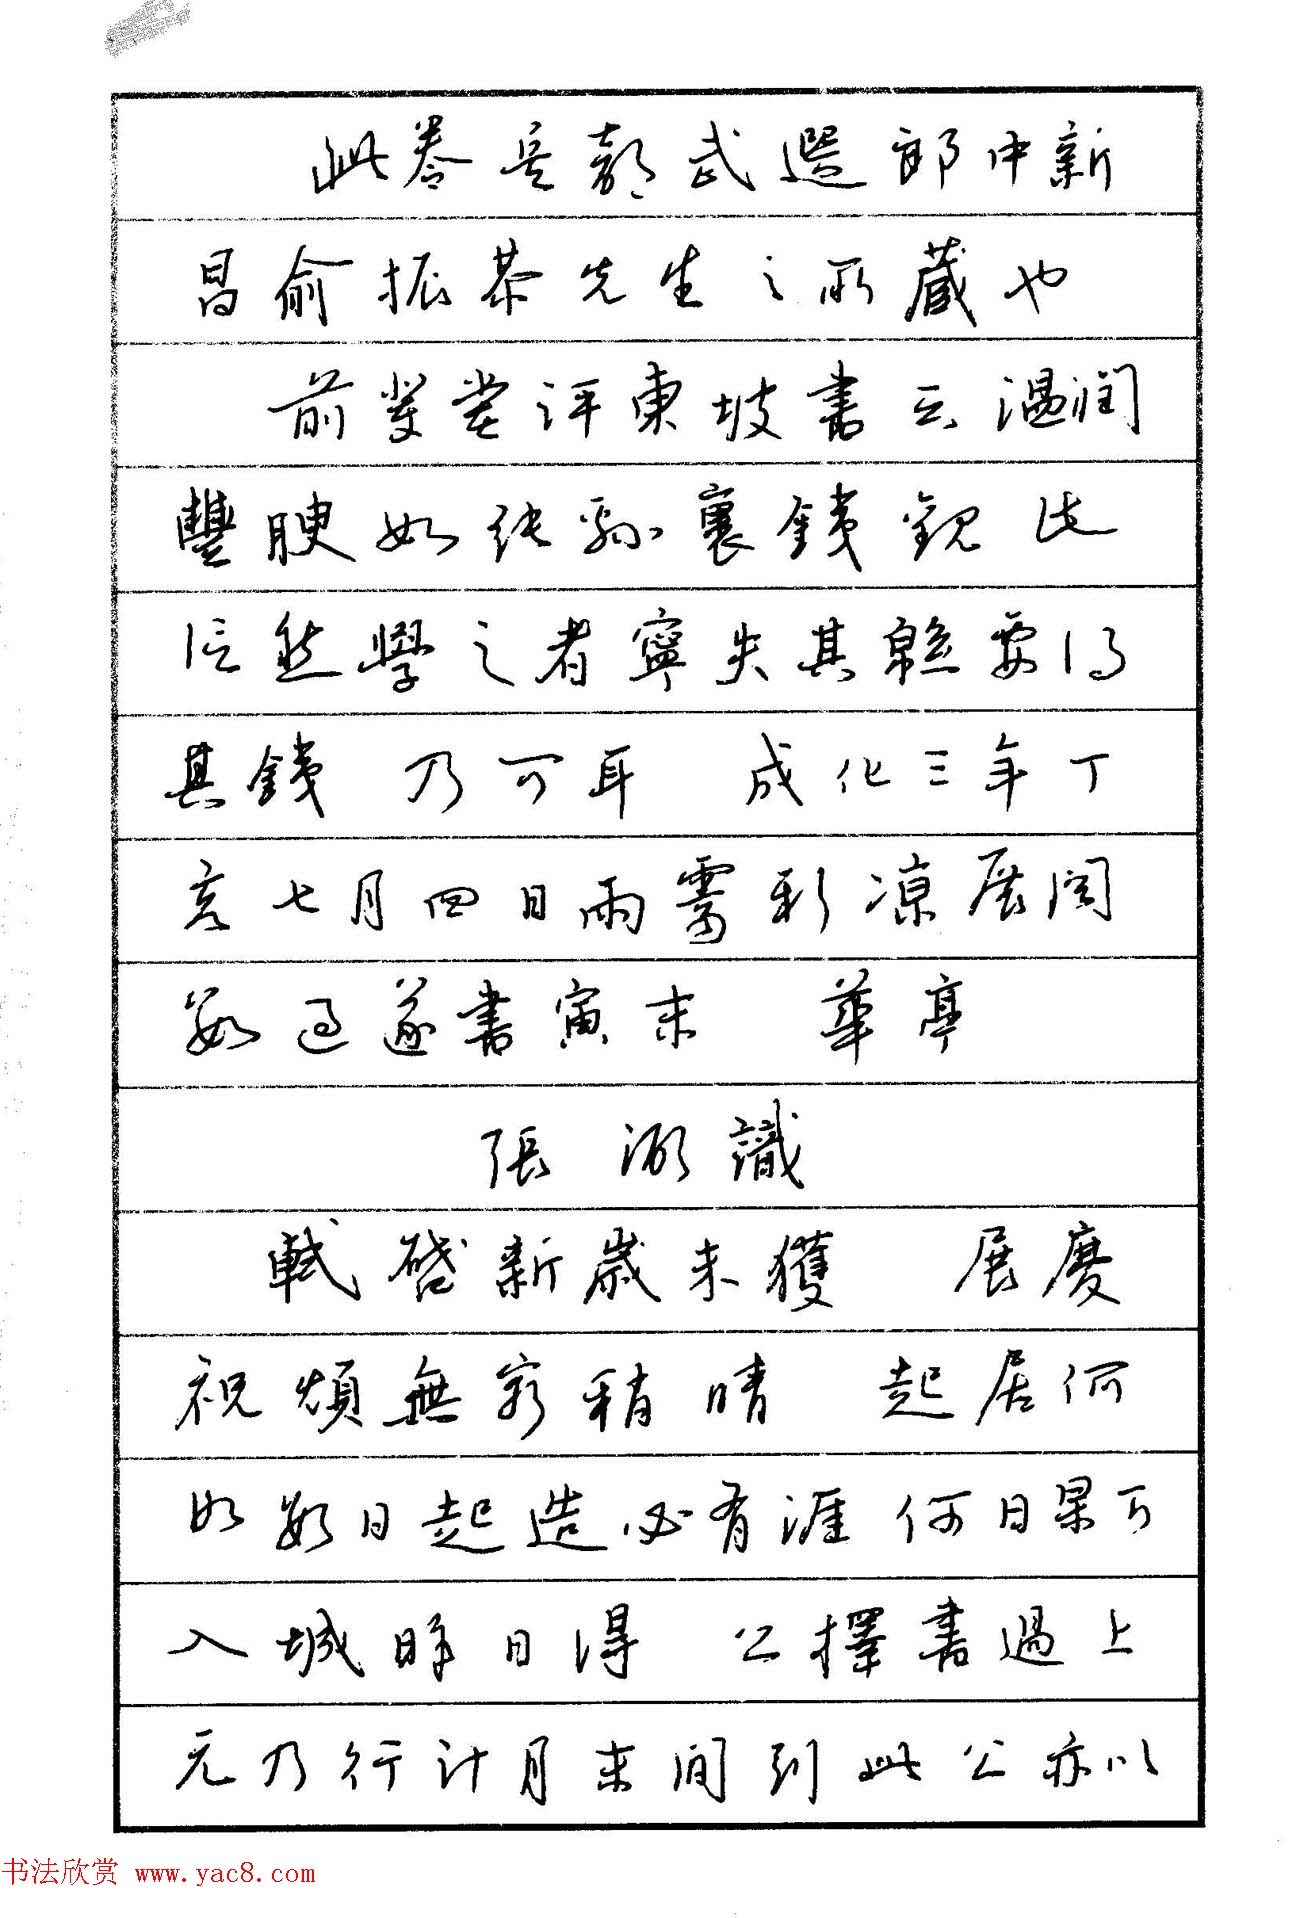 此卷兵部武選郎中新
昌俞振恭先生之所藏也
前輩嘗評東坡書云温潤
豐腴如純綿裹錢觀此
信然學之者寧失其綿要得
其錢 乃可耳 成化三年丁
亥七月四日雨霽新凉展閱
數過遂書寅末 華亭
張 識
軾啓新歲未獲 展慶
祝頌無窮稍晴 起居何
如數日起造必有涯何日果可
入城昨日得 公擇書過上
元乃行計月末間到此公亦以
书法欣赏 www.yac8.com